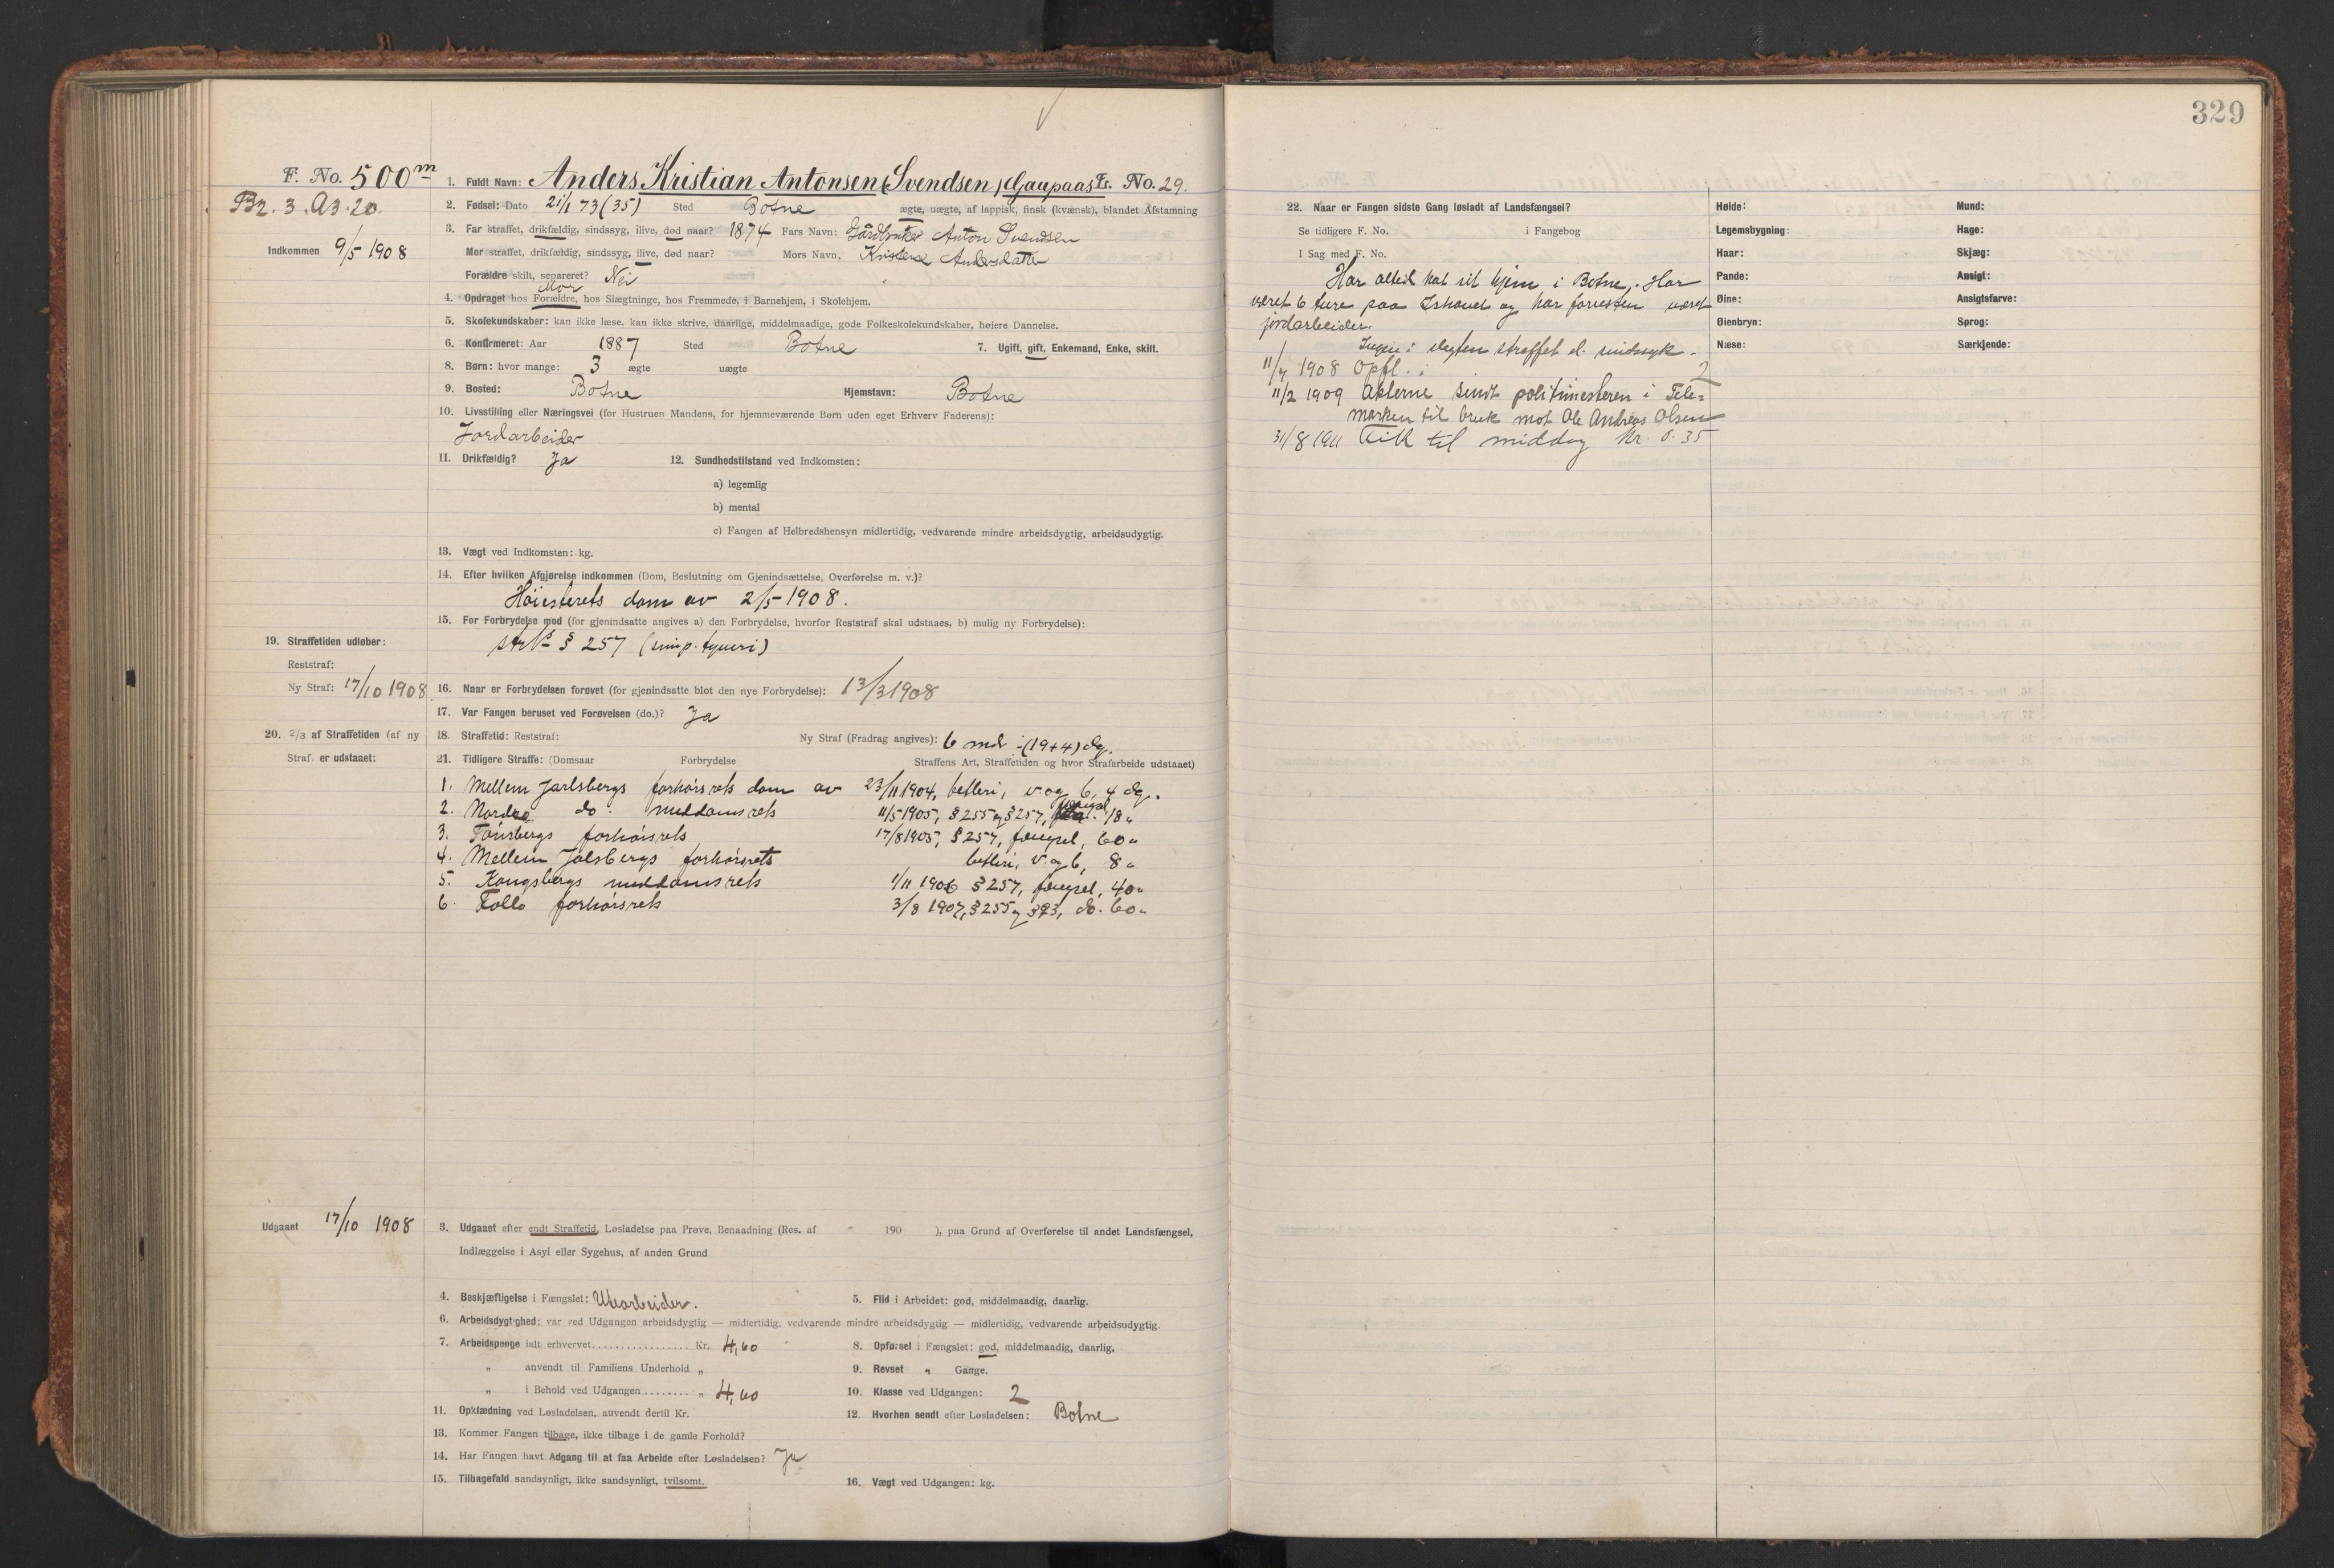 329
F. No. 500m
1. Fuldt Navn: Anders Kristian Antonsen (Svendsen) Gaupaas Fr. No. 29.
Br. 3. A3. 20.
2. Fødsel: Dato 21/1 73 (35) Sted Botne ægte, uægte, af lappisk, finsk (kvænsk), blandet Afstamning
3. Far straffet, drikfældig, sindssyg, ilive, død naar? 1874 Fars Navn: Jordbruker Anton Svendsen
Indkommen 9/5 1908
Mor straffet, drikfældig, sindssyg, ilive, død naar? Mors Navn, Kristene Andersdatter
Forældre skilt, separeret? Nei
Mor
4. Opdraget hos Forældre, hos Slægtninge, hos Fremmede, i Barnehjem, i Skolehjem.
5. Skolekundskaber: kan ikke læse, kan ikke skrive, daarlige, middelmaadige, gode Folkeskolekundskaber, høiere Dannelse.
6. Konfirmeret: Aar 1887 Sted Botne 7. Ugift, gift, Enkemand, Enke, skilt.
8. Børn: hvor mange: 3 ægte uægte
9. Bosted: Botne Hjemstavn: Botne
10. Livsstilling eller Næringsvei (for Hustruen Mandens, for hjemmeværende Børn uden eget Erhverv Faderens):
Jordarbeider
11. Drikfældig? Ja 12. Sundhedstilstand ved Indkomsten:
a) legemlig
b) mental
c) Fangen af Helbredshensyn midlertidig, vedvarende mindre arbeidsdygtig, arbeidsudygtig.
13. Vægt ved Indkomsten: kg.
14. Efter hvilken Afgjørelse indkommen (Dom, Beslutning om Gjenindsættelse, Overførelse m. v.)?
Høiesterets dom av 2/5 1908.
15. For Forbrydelse mod (for gjenindsatte angives a) den Forbrydelse, hvorfor Reststraf skal udstaaes, b) mulig ny Forbrydelse):
§ 257 (simp. tyveri)
19. Straffetiden udløber:
Reststraf:
Ny Straf: 17/10 1908
16. Naar er Forbrydelsen forøvet (for gjenindsatte blot den nye Forbrydelse): 13/3 1908
17. Var Fangen beruset ved Forøvelsen (do.)? Ja
20. 2/3 af Straffetiden (af ny
Straf) er udstaaet:
18. Straffetid: Reststraf: Ny Straf (Fradrag angives): 6 md ÷ (19+4) dg.
21. Tidligere Straffe: (Domsaar Forbrydelse Straffens Art, Straffetiden og hvor Strafarbeide udstaaet)
1. Mellem Jarlsbergs forhørsrets dom av 23/11 1904, betleri, v. og b, 4 dg.
2. Nordre do. meddomsrets 11/5 1905, § 255 og § 257, fængsel, 18 "
3. Tønsbergs forhørsrets 17/8 1905, § 257, fængsel, 60 "
4. Mellem Jalsbergs forhørsrets betleri, v. og b, 8 "
5. Kongsbergs meddomsrets 1/11 1906 § 257, fængsel, 40 "
6. Follo forhørsrets 3/8 1907, § 255 og 393, do. 60 "
Udgaaet 17/10 1908
3. Udgaaet efter endt Straffetid, Løsladelse paa Prøve, Benaadning (Res. af " 190 ), paa Grund af Overførelse til andet Landsfængsel,
Indlæggelse i Asyl eller Sygehus, af anden Grund
4. Beskjæftigelse i Fængslet: Utearbeider. 5. Flid i Arbeidet: god, middelmaadig, daarlig.
6. Arbeidsdygtighed: var ved Udgangen arbeidsdygtig — midlertidig, vedvarende mindre arbeidsdygtig — midlertidig, vedvarende arbeidsudygtig.
7. Arbeidspenge ialt erhvervet................. Kr. 4,60 8. Opførsel i Fængslet: god, middelmaadig, daarlig.
" anvendt til Familiens Underhold " 9. Revset " Gange.
" i Behold ved Udgangen........ " 4,60 10. Klasse ved Udgangen: 2
11. Opklædning ved Løsladelsen, anvendt dertil Kr. 12. Hvorhen sendt efter Løsladelsen: Botne
13. Kommer Fangen tilbage, ikke tilbage i de gamle Forhold?
14. Har Fangen havt Adgang til at faa Arbeide efter Løsladelsen? Ja
15. Tilbagefald sandsynligt, ikke sandsynligt, tvilsomt. 16. Vægt ved Udgangen: kg.
22. Naar er Fangen sidste Gang løsladt af Landsfængsel?
Se tidligere F. No. i Fangebog
I Sag med F. No.
Har altid hat sit hjem i Botne. Har
været 6 ture paa Ishavet og har forresten været
jordarbeider.
Ingen i slegten straffet el. sindssyk.
11/7 1908 Opfl. i 2
11/2 1909 Akterne sendt politimesteren i Tele=
marken til bruk mot Ole Andreas Olsen
31/8 1911 Fik til middag kr. 0.35
Høide: Mund:
Legemsbygning: Hage:
Haar: Skjæg:
Pande: Ansigt:
Øine: Ansigtsfarve:
Øienbryn: Sprog:
Næse: Særkjende: